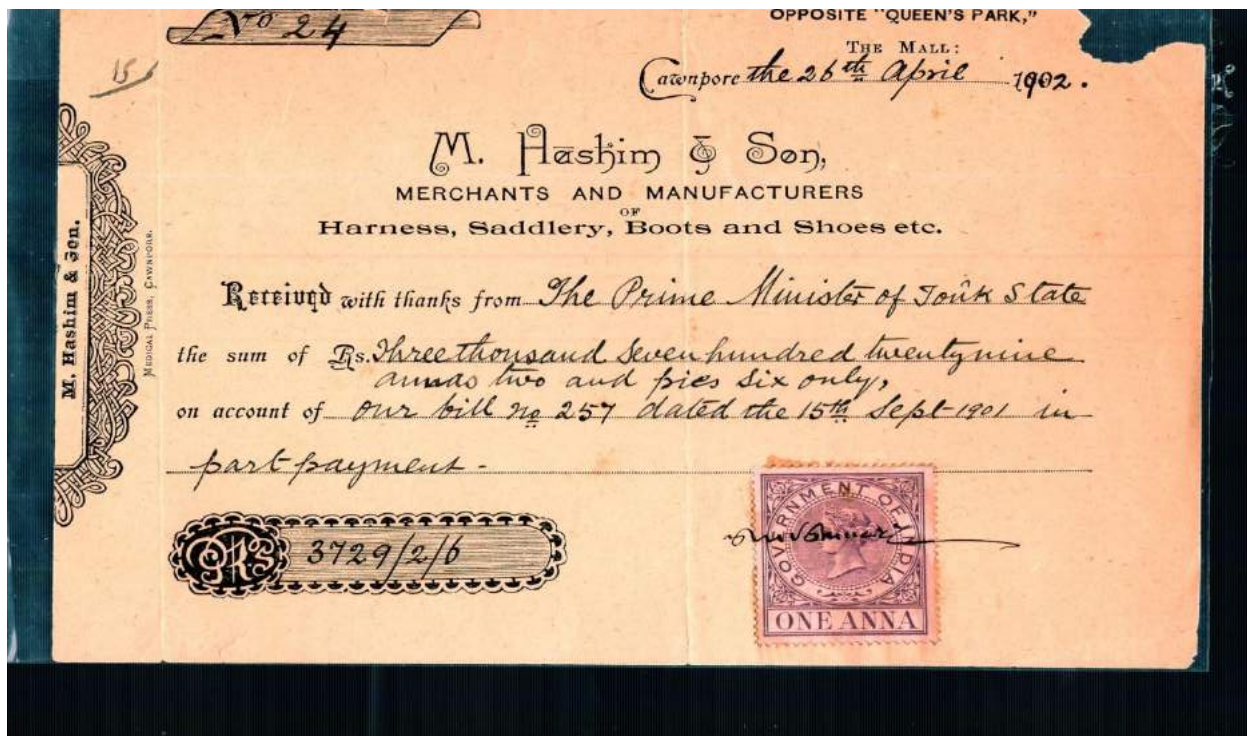 No 24
OPPOSITE "QUEEN'S PARK,"
THE MALL:
15
Cawnpore the 26th April 1902.
M. Hashim & Son,
MERCHANTS AND MANUFACTURERS
OF
Harness, Saddlery, Boots and Shoes etc.
M. Hashim & Son.
MEDICAL PRESS, CAWNPORE.
Received with thanks from The Prime Minister of Tonk State
the sum of Rs. Three thousand Seven hundred twentynine
annas two and pies Six only,
on account of Our bill No 257 dated the 15th Sept 1901 in
part payment -
RS 3729/2/6
GOVERNMENT OF INDIA
ONE ANNA